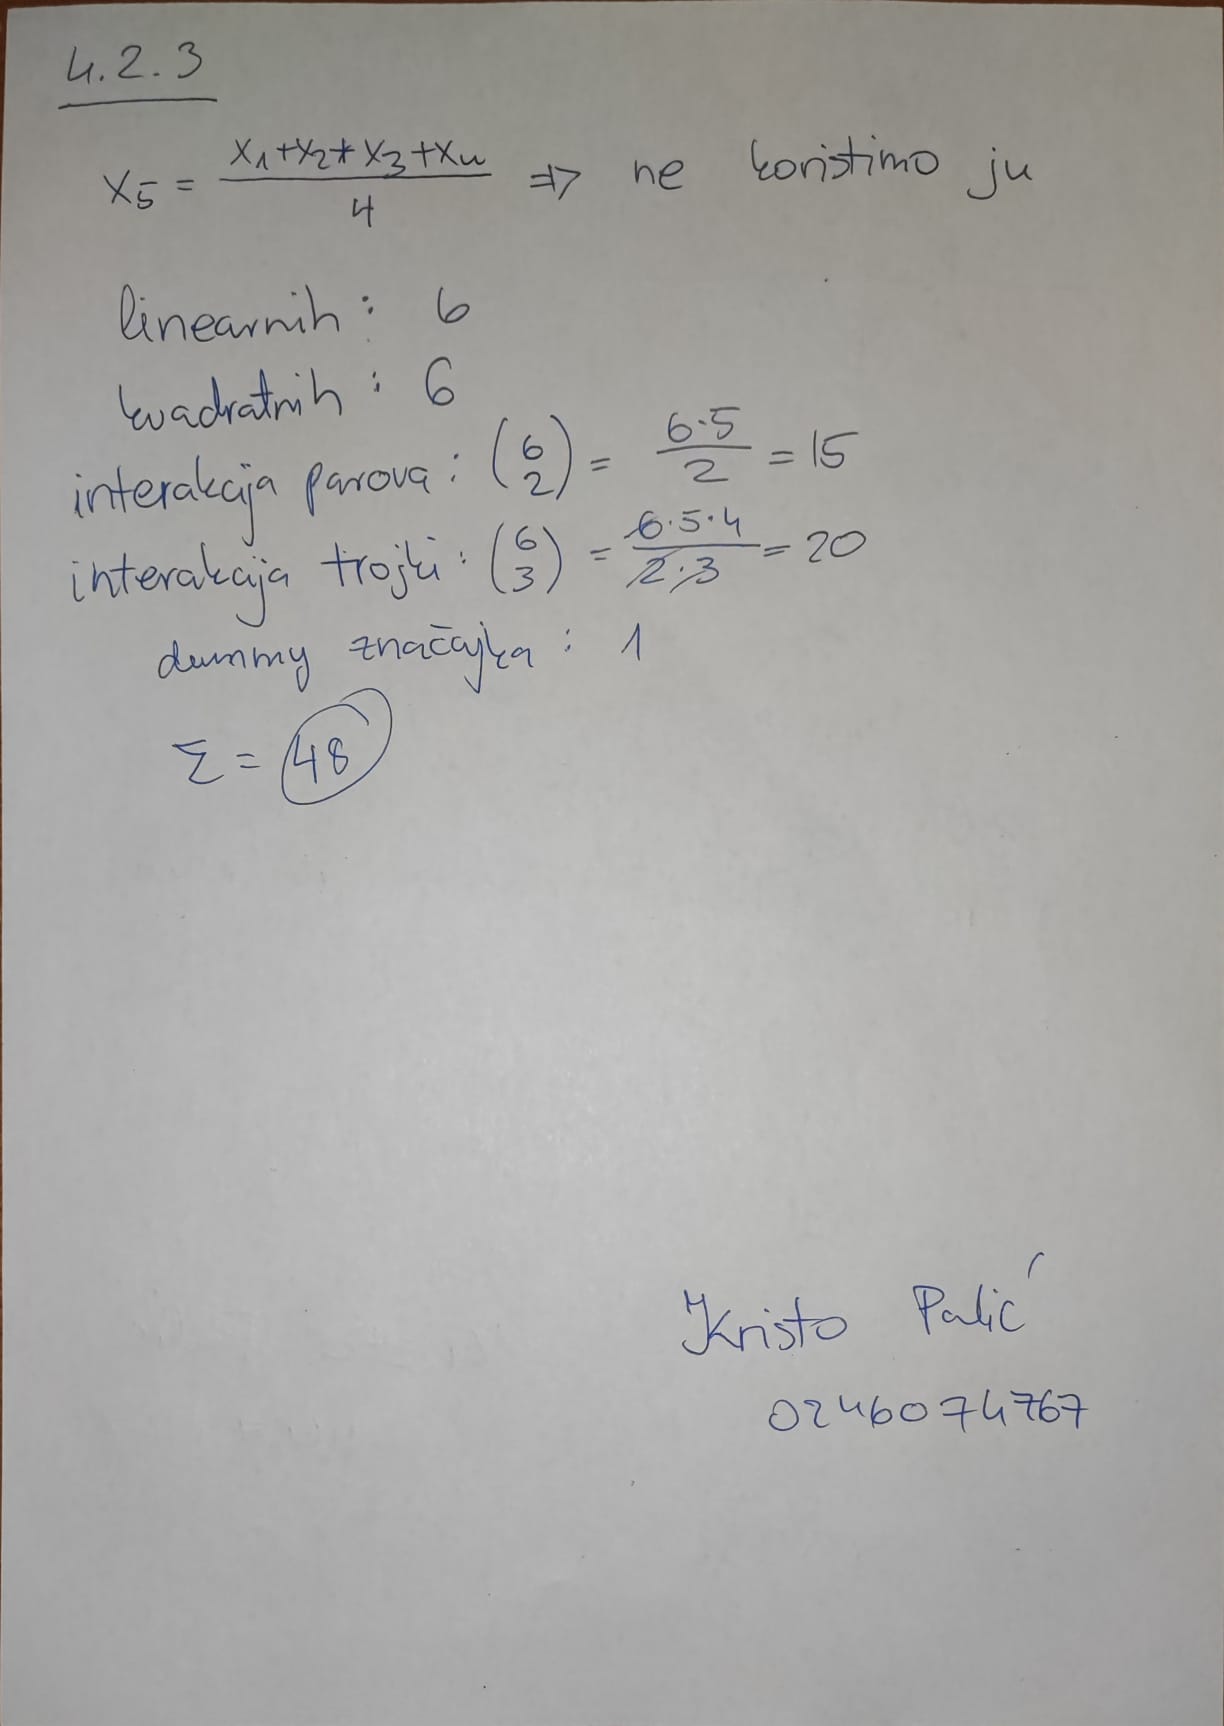 4.2.3
X5 = (X1+X2+X3+X4)/4 => ne koristimo ju
linearnih: 6
kvadratnih: 6
interakcija parova: (6 2) = (6·5)/2 = 15
interakcija trojki: (6 3) = (6·5·4)/(2·3) = 20
dummy značajka: 1
Σ = 48
Kristo Palić
0246074767